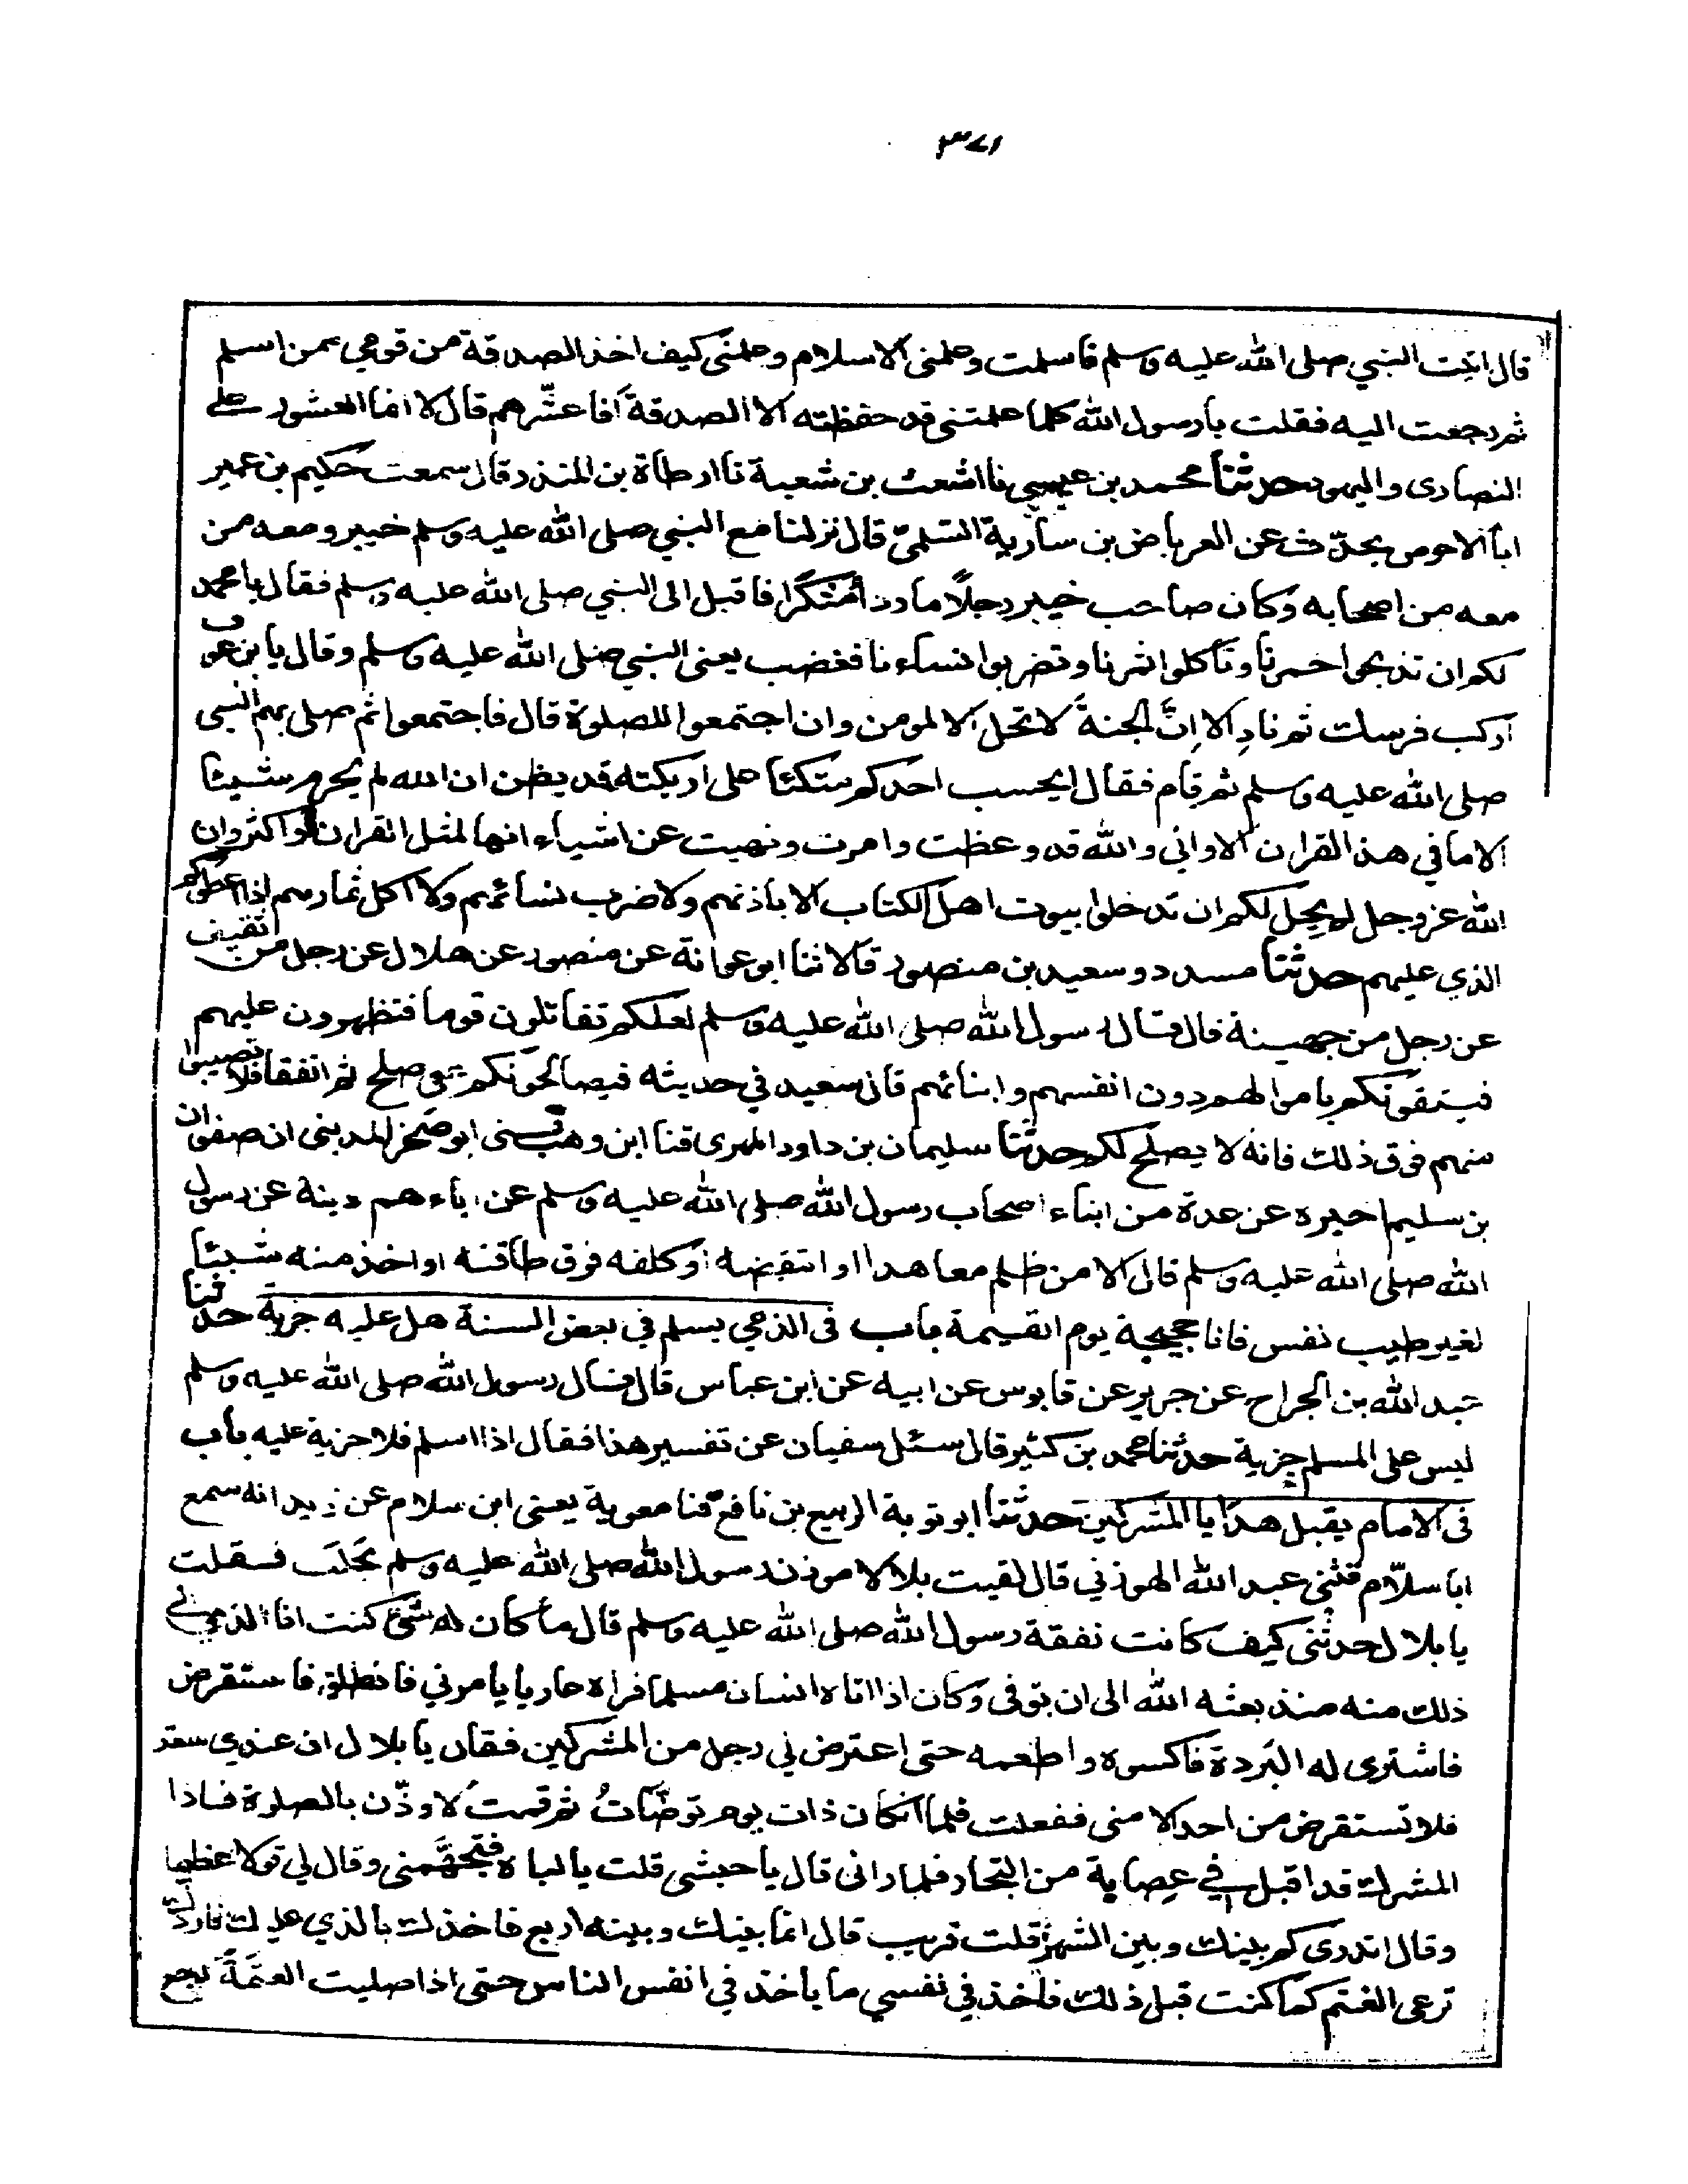 ٣٧١
قال اتيت النبي صلى الله عليه وسلم فاسلمت وعلمنى الاسلام وعلمنى كيف اخذ الصدقة من قومي ممن اسلم
ثم رجعت اليه فقلت يا رسول الله كلما علمتنى قد حفظته الا الصدقة افاعشّرهم قال لا انما العشور على
النصارى واليهود حدثنا محمد بن عيسى نا اشعث بن شعبة نا ارطاة بن المنذر قال سمعت حكيم بن عمير
ابا الاحوص يحدّث عن العرباض بن سارية السّلميّ قال نزلنا مع النبي صلى الله عليه وسلم خيبر ومعه من
معه من اصحابه وكان صاحب خيبر رجلًا ماردا مُنكرًا فاقبل الى النبي صلى الله عليه وسلم فقال يا محمد
لكم ان تذبحوا حمرنا وتأكلوا ثمرنا وتضربوا نساءنا فغضب يعنى النبي صلى الله عليه وسلم وقال يا بن عوف
اركب فرسك ثم نادِ الا اِنّ الجنةَ لا تحل الا لمومن وان اجتمعوا للصلوة قال فاجتمعوا ثم صلى بهم النبى
صلى الله عليه وسلم ثم قام فقال ايحسب احدكم متكئا على اريكته قد يظن ان الله لم يحرم شيئا
الا ما في هذا القران الا واني والله قد وعظت وامرت ونهيت عن اشياء انها لمثل القران او اكثر وان
الله عز وجل لم يحِل لكم ان تدخلوا بيوت اهل الكتاب الا باذنهم ولا ضرب نسائهم ولا اكل ثمارهم اذا اعطوكم
الذي عليهم حدثنا مسدد وسعيد بن منصور قالا ثنا ابو عوانة عن منصور عن هلال عن رجل من ثقيف
عن رجل من جهينة قال قال رسول الله صلى الله عليه وسلم لعلكم تقاتلون قوما فتظهرون عليهم
فيتقونكم باموالهم دون انفسهم وابنائهم قال سعيد في حديثه فيصالحونكم على صلح ثم اتفقا فلا تصيبوا
منهم فوق ذلك فانه لا يصلح لكم حدثنا سليمان بن داود المهرى قثنا ابن وهب ثنى ابو صخر المدينى ان صفوان
بن سليم اخبره عن عدة من ابناء اصحاب رسول الله صلى الله عليه وسلم عن اباءهم دينة عن رسول
الله صلى الله عليه وسلم قال الا من ظلم معاهدا او انتقصه او كلفه فوق طاقته او اخذ منه شيئا
لغير طيب نفس فانا حجيجه يوم القيمة باب فى الذمي يسلم في بعض السنة هل عليه جزية حدثنا
عبد الله بن الجراح عن جرير عن قابوس عن ابيه عن ابن عباس قال قال رسول الله صلى الله عليه وسلم
ليس على المسلم جزية حدثنا محمد بن كثير قال سئل سفيان عن تفسير هذا فقال اذا اسلم فلا جزية عليه باب
فى الامام يقبل هدايا المشركين حدثنا ابو توبة الربيع بن نافع قثنا معوية يعنى ابن سلام عن زيد انه سمع
ابا سلّام قثنى عبد الله الهوزني قال لقيت بلالا موذن رسول الله صلى الله عليه وسلم بحَلَب فقلت
يا بلال حدثنى كيف كانت نفقة رسول الله صلى الله عليه وسلم قال ما كان له شئ كنت انا الذي الي
ذلك منه منذ بعثه الله الى ان توفى وكان اذا اتاه انسان مسلما فراه عاريا يامرني فانطلق فاستقرض
فاشترى له البردة فاكسوه واطعمه حتى اعترض ني رجل من المشركين فقال يا بلال ان عندى سعة
فلا تستقرض من احد الا منى ففعلت فلما ان كان ذات يوم توضّاتُ ثم قمت لاوذّن بالصلوة فاذا
المشرك قد اقبل في عصابة من التجار فلما رانى قال يا حبشى قلت يالباه فتجهّمنى وقال لي قولا عظيما
وقال اتدرى كم بينك وبين الشهر قلت قريب قال انما بينك وبينه اربع فاخذك بالذي عليك فاردّك
ترعى الغنم كما كنت قبل ذلك فاخذ في نفسي ما ياخذ في انفس الناس حتى اذا صليت العتمة رجع